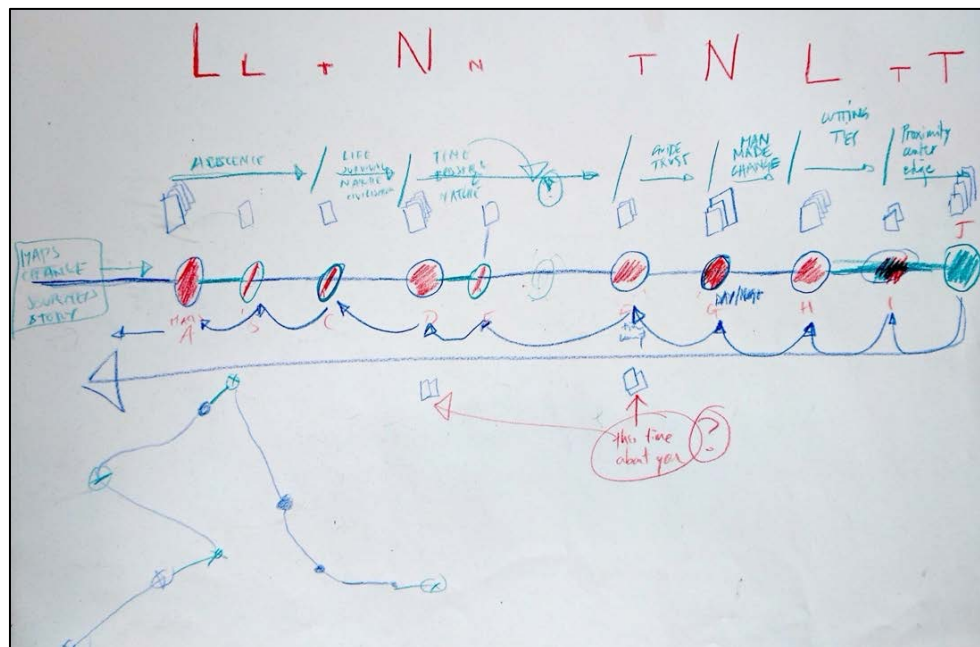 L L T N N T N L T T
ABSCENCE
LIFE
SURVIVAL
NATURE
CIVILISATION
TIME
PASSES &
NATURE
?
GUIDE
TRUST
MAN
MADE
CHANGE
CUTTING
TIES
Proximity
center
edge
MAPS
CHANGE
JOURNEYS
STORY
J
A
B
C
D
E
G
DAY/NIGHT
H
I
this time
about you
?